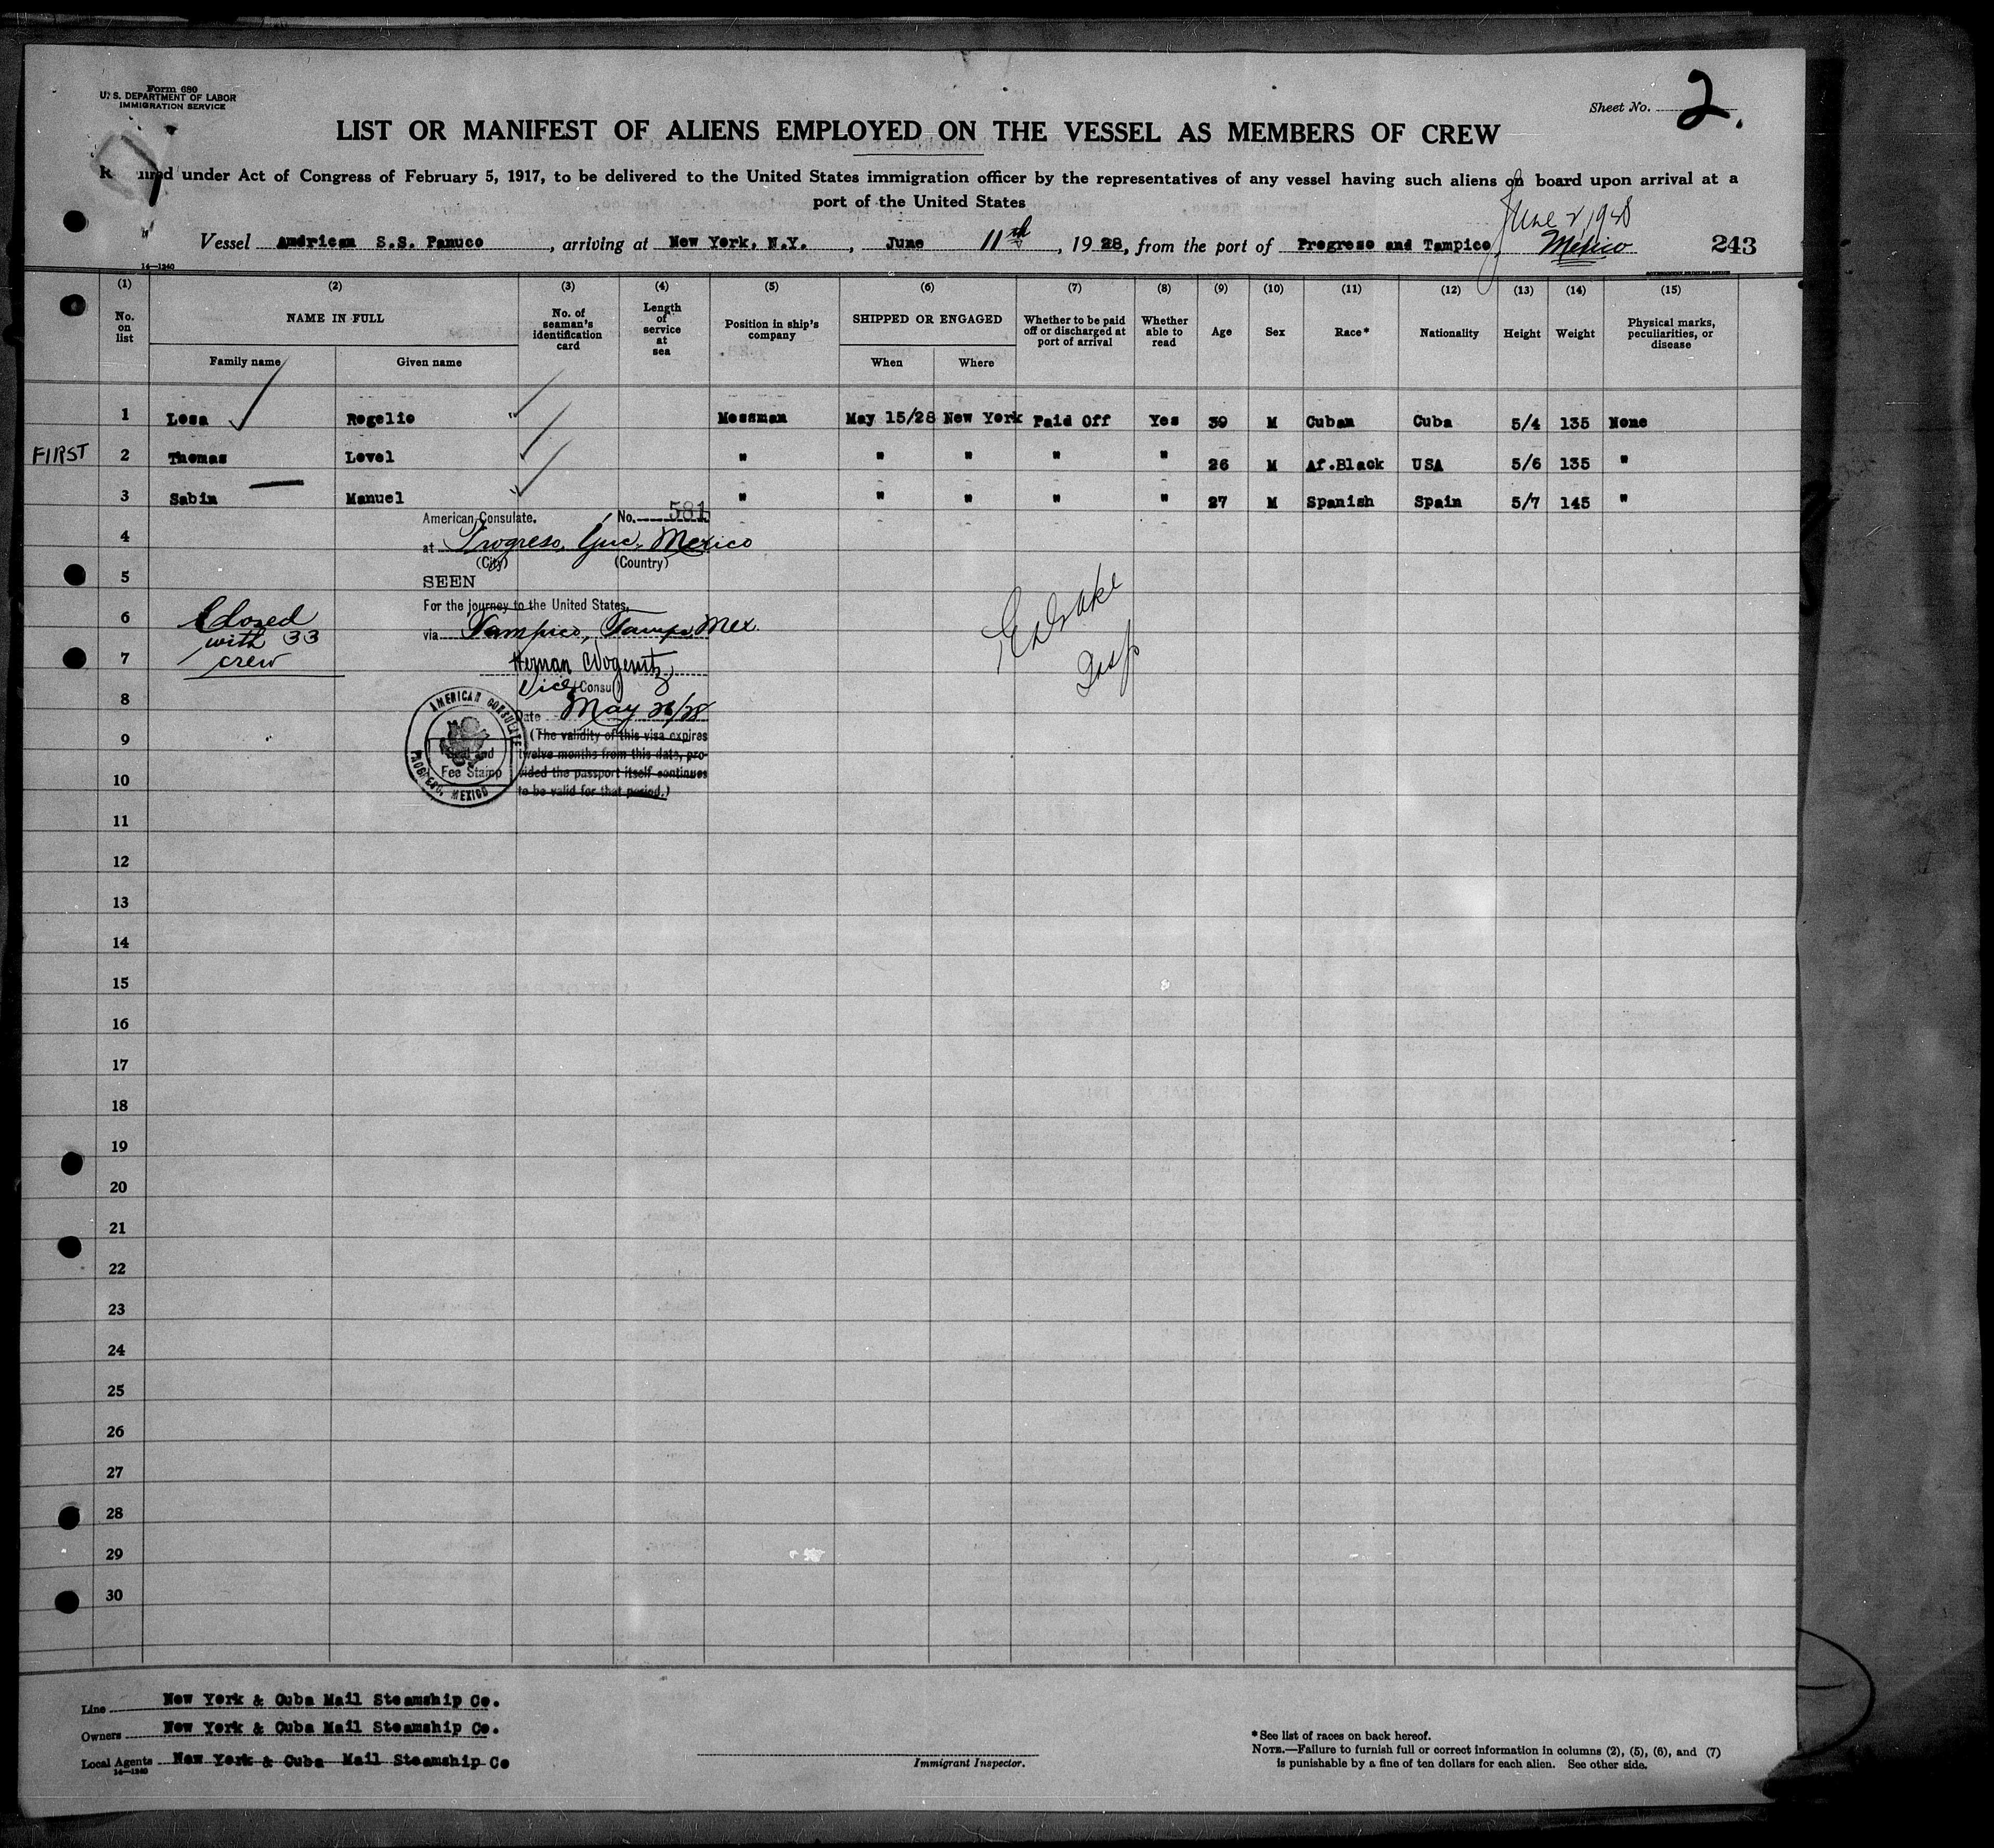 Form 680
U. S. DEPARTMENT OF LABOR
IMMIGRATION SERVICE
Sheet No. 2.
LIST OR MANIFEST OF ALIENS EMPLOYED ON THE VESSEL AS MEMBERS OF CREW
under Act of Congress of February 5, 1917, to be delivered to the United States immigration officer by the representatives of any vessel having such aliens on board upon arrival at a
port of the United States
June 2, 1928
Vessel American S.S. Panuco, arriving at New York, N.Y., June 11th, 1928, from the port of Progreso and Tampico, Mexico 243
14—1240
(1) (2) (3) (4) (5) (6) (7) (8) (9) (10) (11) (12) (13) (14) (15)
No. on list NAME IN FULL No. of seaman's identification card Length of service at sea Position in ship's company SHIPPED OR ENGAGED Whether to be paid off or discharged at port of arrival Whether able to read Age Sex Race* Nationality Height Weight Physical marks, peculiarities, or disease
Family name Given name When Where
1 Losa Rogelio Messman May 15/28 New York Paid Off Yes 39 M Cuban Cuba 5/4 135 None
FIRST 2 Thomas Lovel " " " " " 26 M Af.Black USA 5/6 135 "
3 Sabin Manuel " " " " " 27 M Spanish Spain 5/7 145 "
American Consulate. No. 581
4
at Progreso, Yuc, Mexico
(City) (Country)
5
SEEN
For the journey to the United States,
6
Closed
with 33
crew
via Tampico, Tamps Mex.
7
Vice Consul
8
Date May 26/28
9
(The validity of this visa expires
twelve months from this date, pro-
vided the passport itself continues
to be valid for that period.)
AMERICAN CONSULATE
PROGRESO, MEXICO
Seal and
Fee Stamp
10
11
12
13
14
15
16
17
18
19
20
21
22
23
24
25
26
27
28
29
30
Line New York & Cuba Mail Steamship Co.
Owners New York & Cuba Mail Steamship Co.
Local Agents New York & Cuba Mail Steamship Co
14—1240
Immigrant Inspector.
*See list of races on back hereof.
NOTE.—Failure to furnish full or correct information in columns (2), (5), (6), and (7)
is punishable by a fine of ten dollars for each alien. See other side.